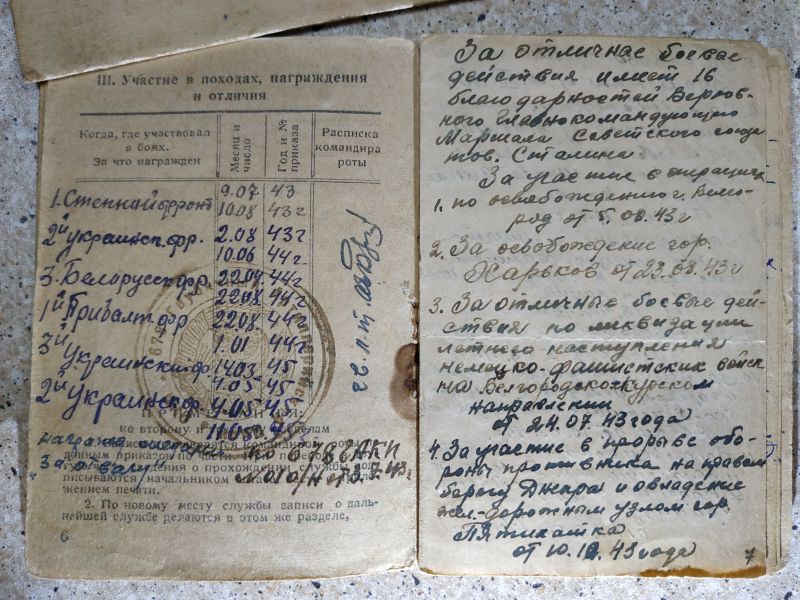 III. Участие в походах, награждения
и отличия
Когда, где участвовал
в боях.
За что награжден
Месяц и
число
Год и №
приказа
Расписка
командира
роты
1. Степной фронт 9.07 43
10.08 43 г
2й Украинск. фр. 2.08 43 г
10.06 44 г.
3. Белорусск фр. 22.04 44 г
22.08. 44 г.
1й Прибалт. фр 22.08 44
3й Украинский фр 1.01 44
14.03 45
2й Украинск фр 4.05 45
4.05 45
11.05
ко второму и разделам
награжд
За отвагу по 678 АКП
ведения о прохождении службы
писываются начальником
жением печати.
2. По новому месту службы записи о даль-
нейшей службе делаются в этом же разделе,
6
За отличнае боевые
действия имеет 16
благодарностей Верхов-
ного Главнокомандующего
Маршала Советского союза
тов. Сталина
За участие в операциях
1. по освобождению г. Белго-
род от 5.08.43 г
2. За освобождение гор.
Харьков от 23.08.43 г
3. За отличные боевые дей-
ствия по ликвидации
летнего наступления
немецко-фашистских войск
на Белгородско-курском
направлении
от 24.07.43 года
4. За участие в прорыве обо-
роны противника на правом
берегу Днепра и овладение
жел-дорожным узлом гор.
Пятихатка
от 10.10.43 года
7